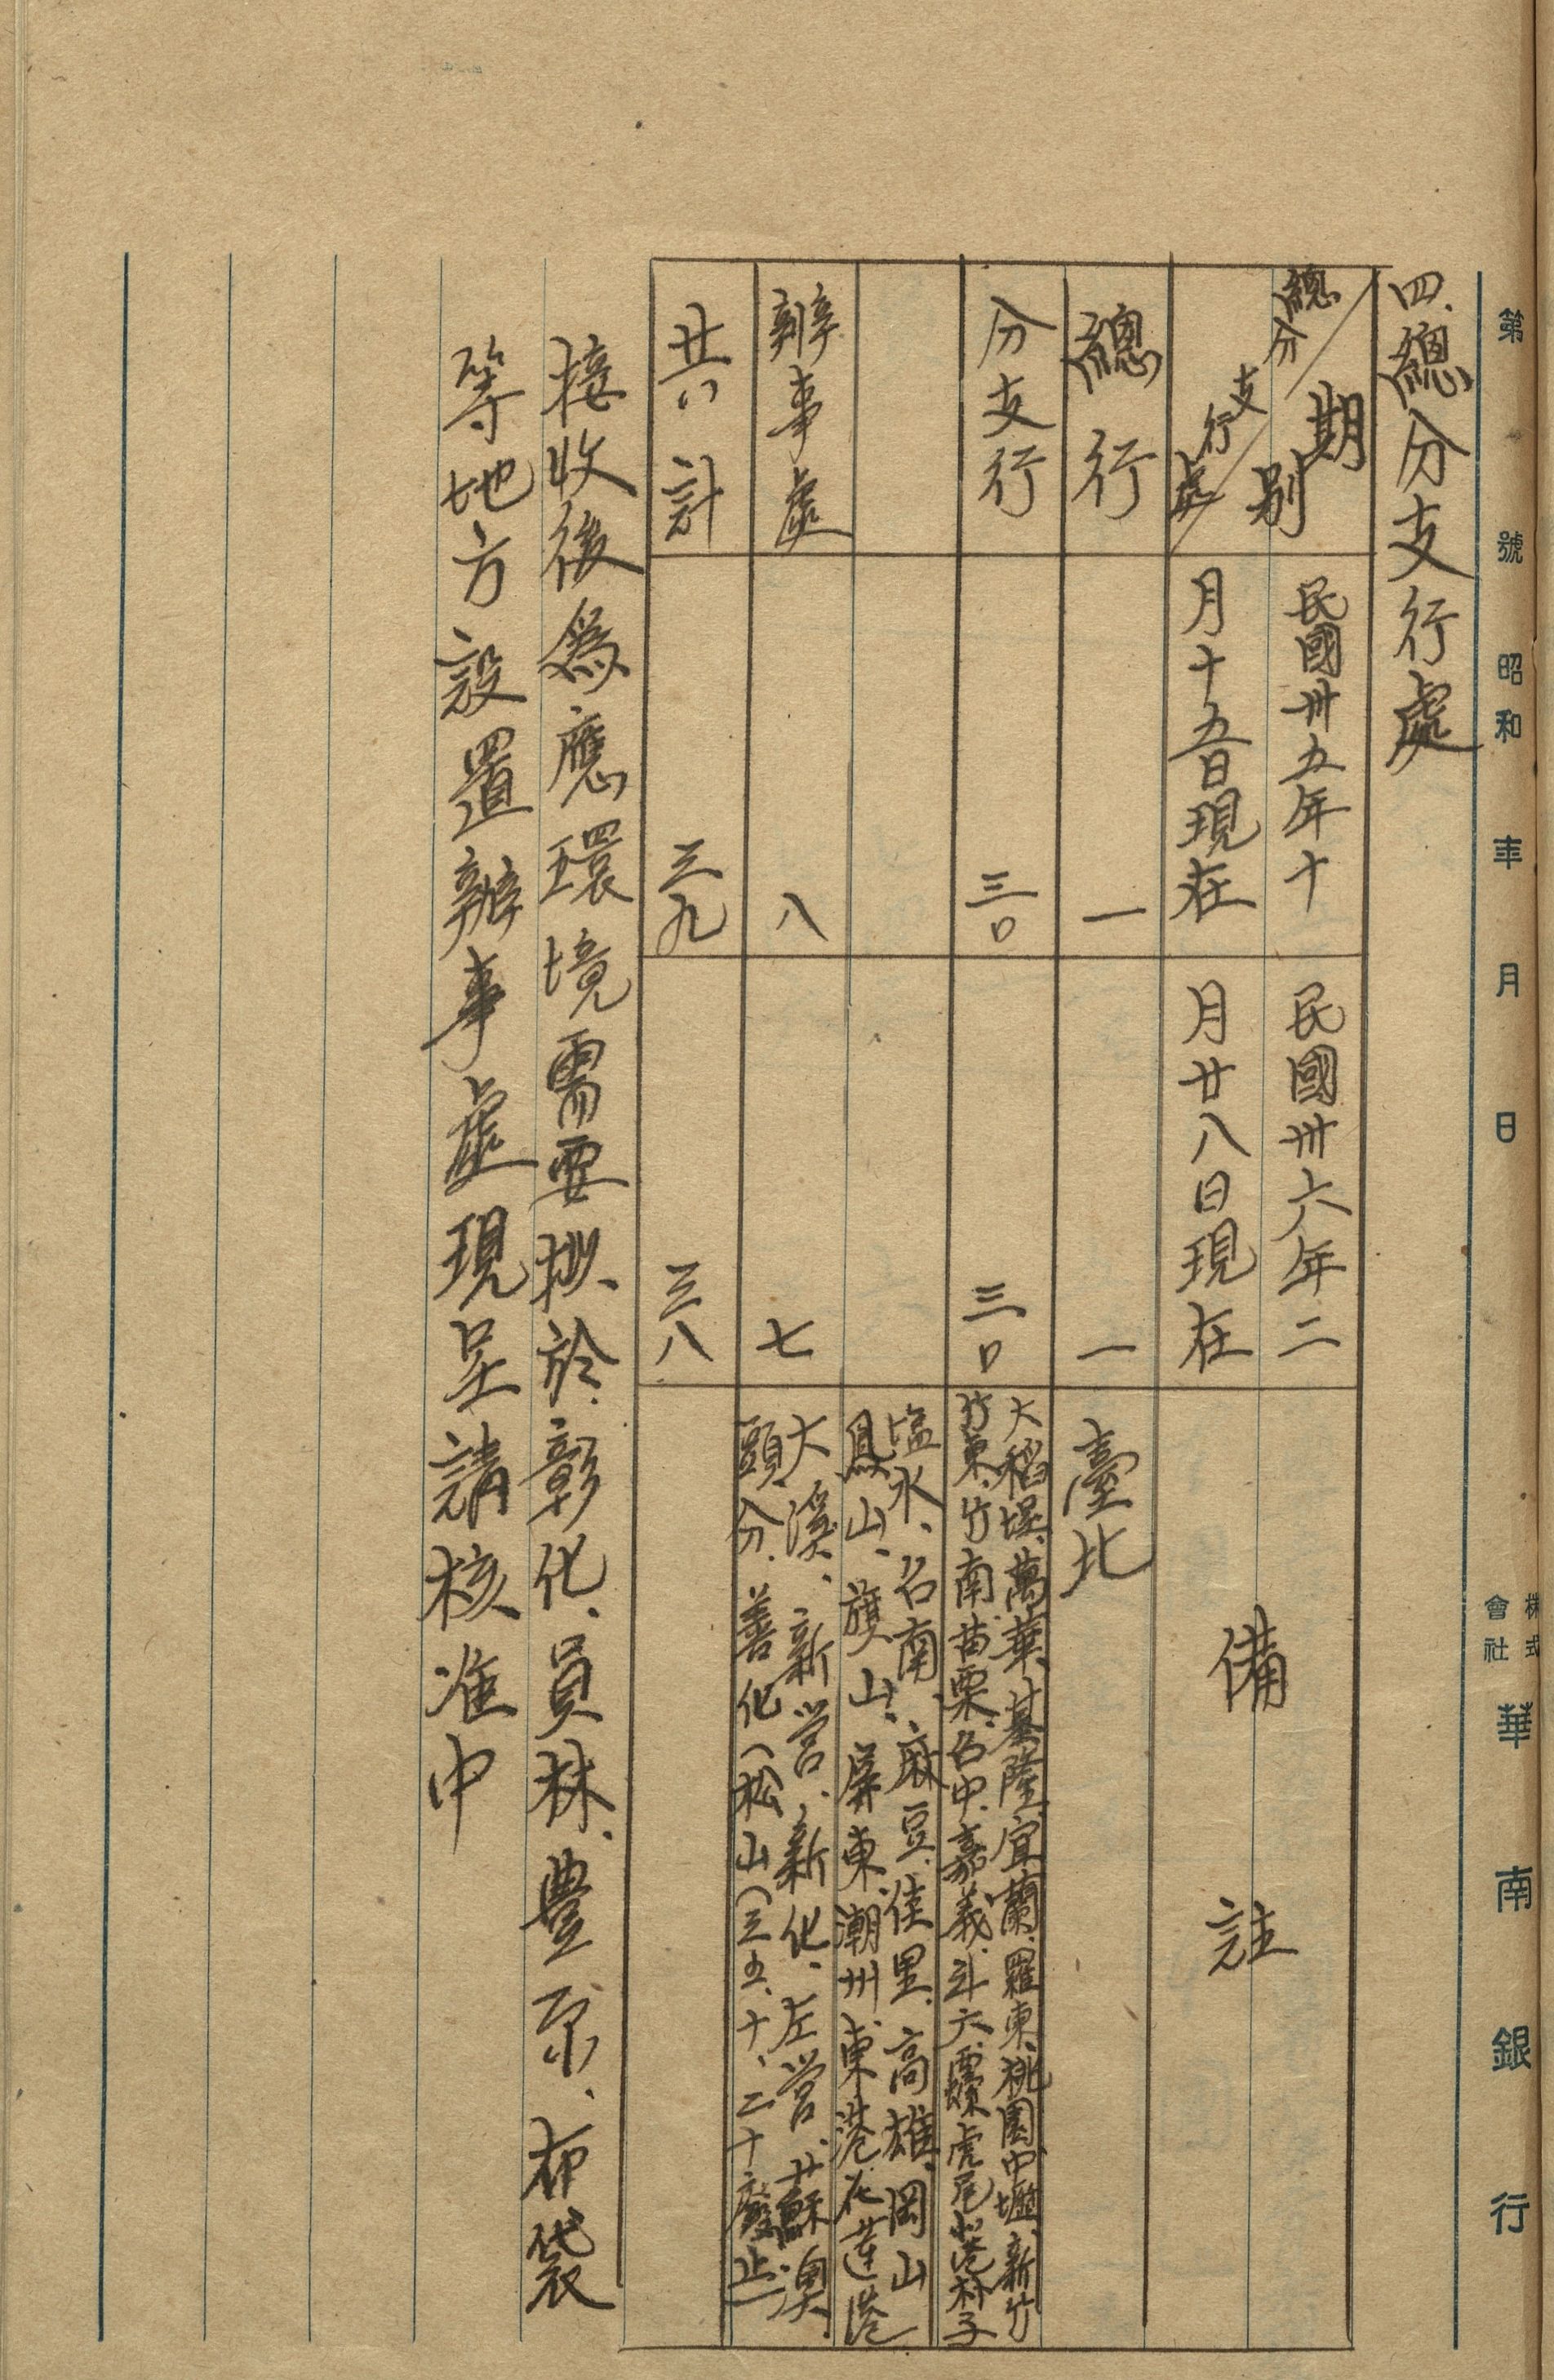 第 號 昭和 年 月 日 株式會社 華南銀行
四、總分支行處
期別
總分支行處
民國卅五年十
月十五日現在
民國卅六年二
月廿八日現在
備註
總行
一
一
臺北
分支行
三〇
三〇
大稻埕、萬華、基隆、宜蘭、羅東、桃園、中壢、新竹
竹東、竹南、苗栗、台中、嘉義、斗六、西螺、虎尾、北港、朴子
塩水、台南、麻豆、佳里、高雄、岡山
鳳山、旗山、屏東、潮州、東港、花蓮港
辦事處
八
七
大溪、新營、新化、左營、蘇澳、
頭分、善化(松山(三五、十、二十廢止)
共計
三九
三八
接收後為應環境需要拟於彰化、員林、豊原、布袋
等地方設置辦事處現呈請核准中